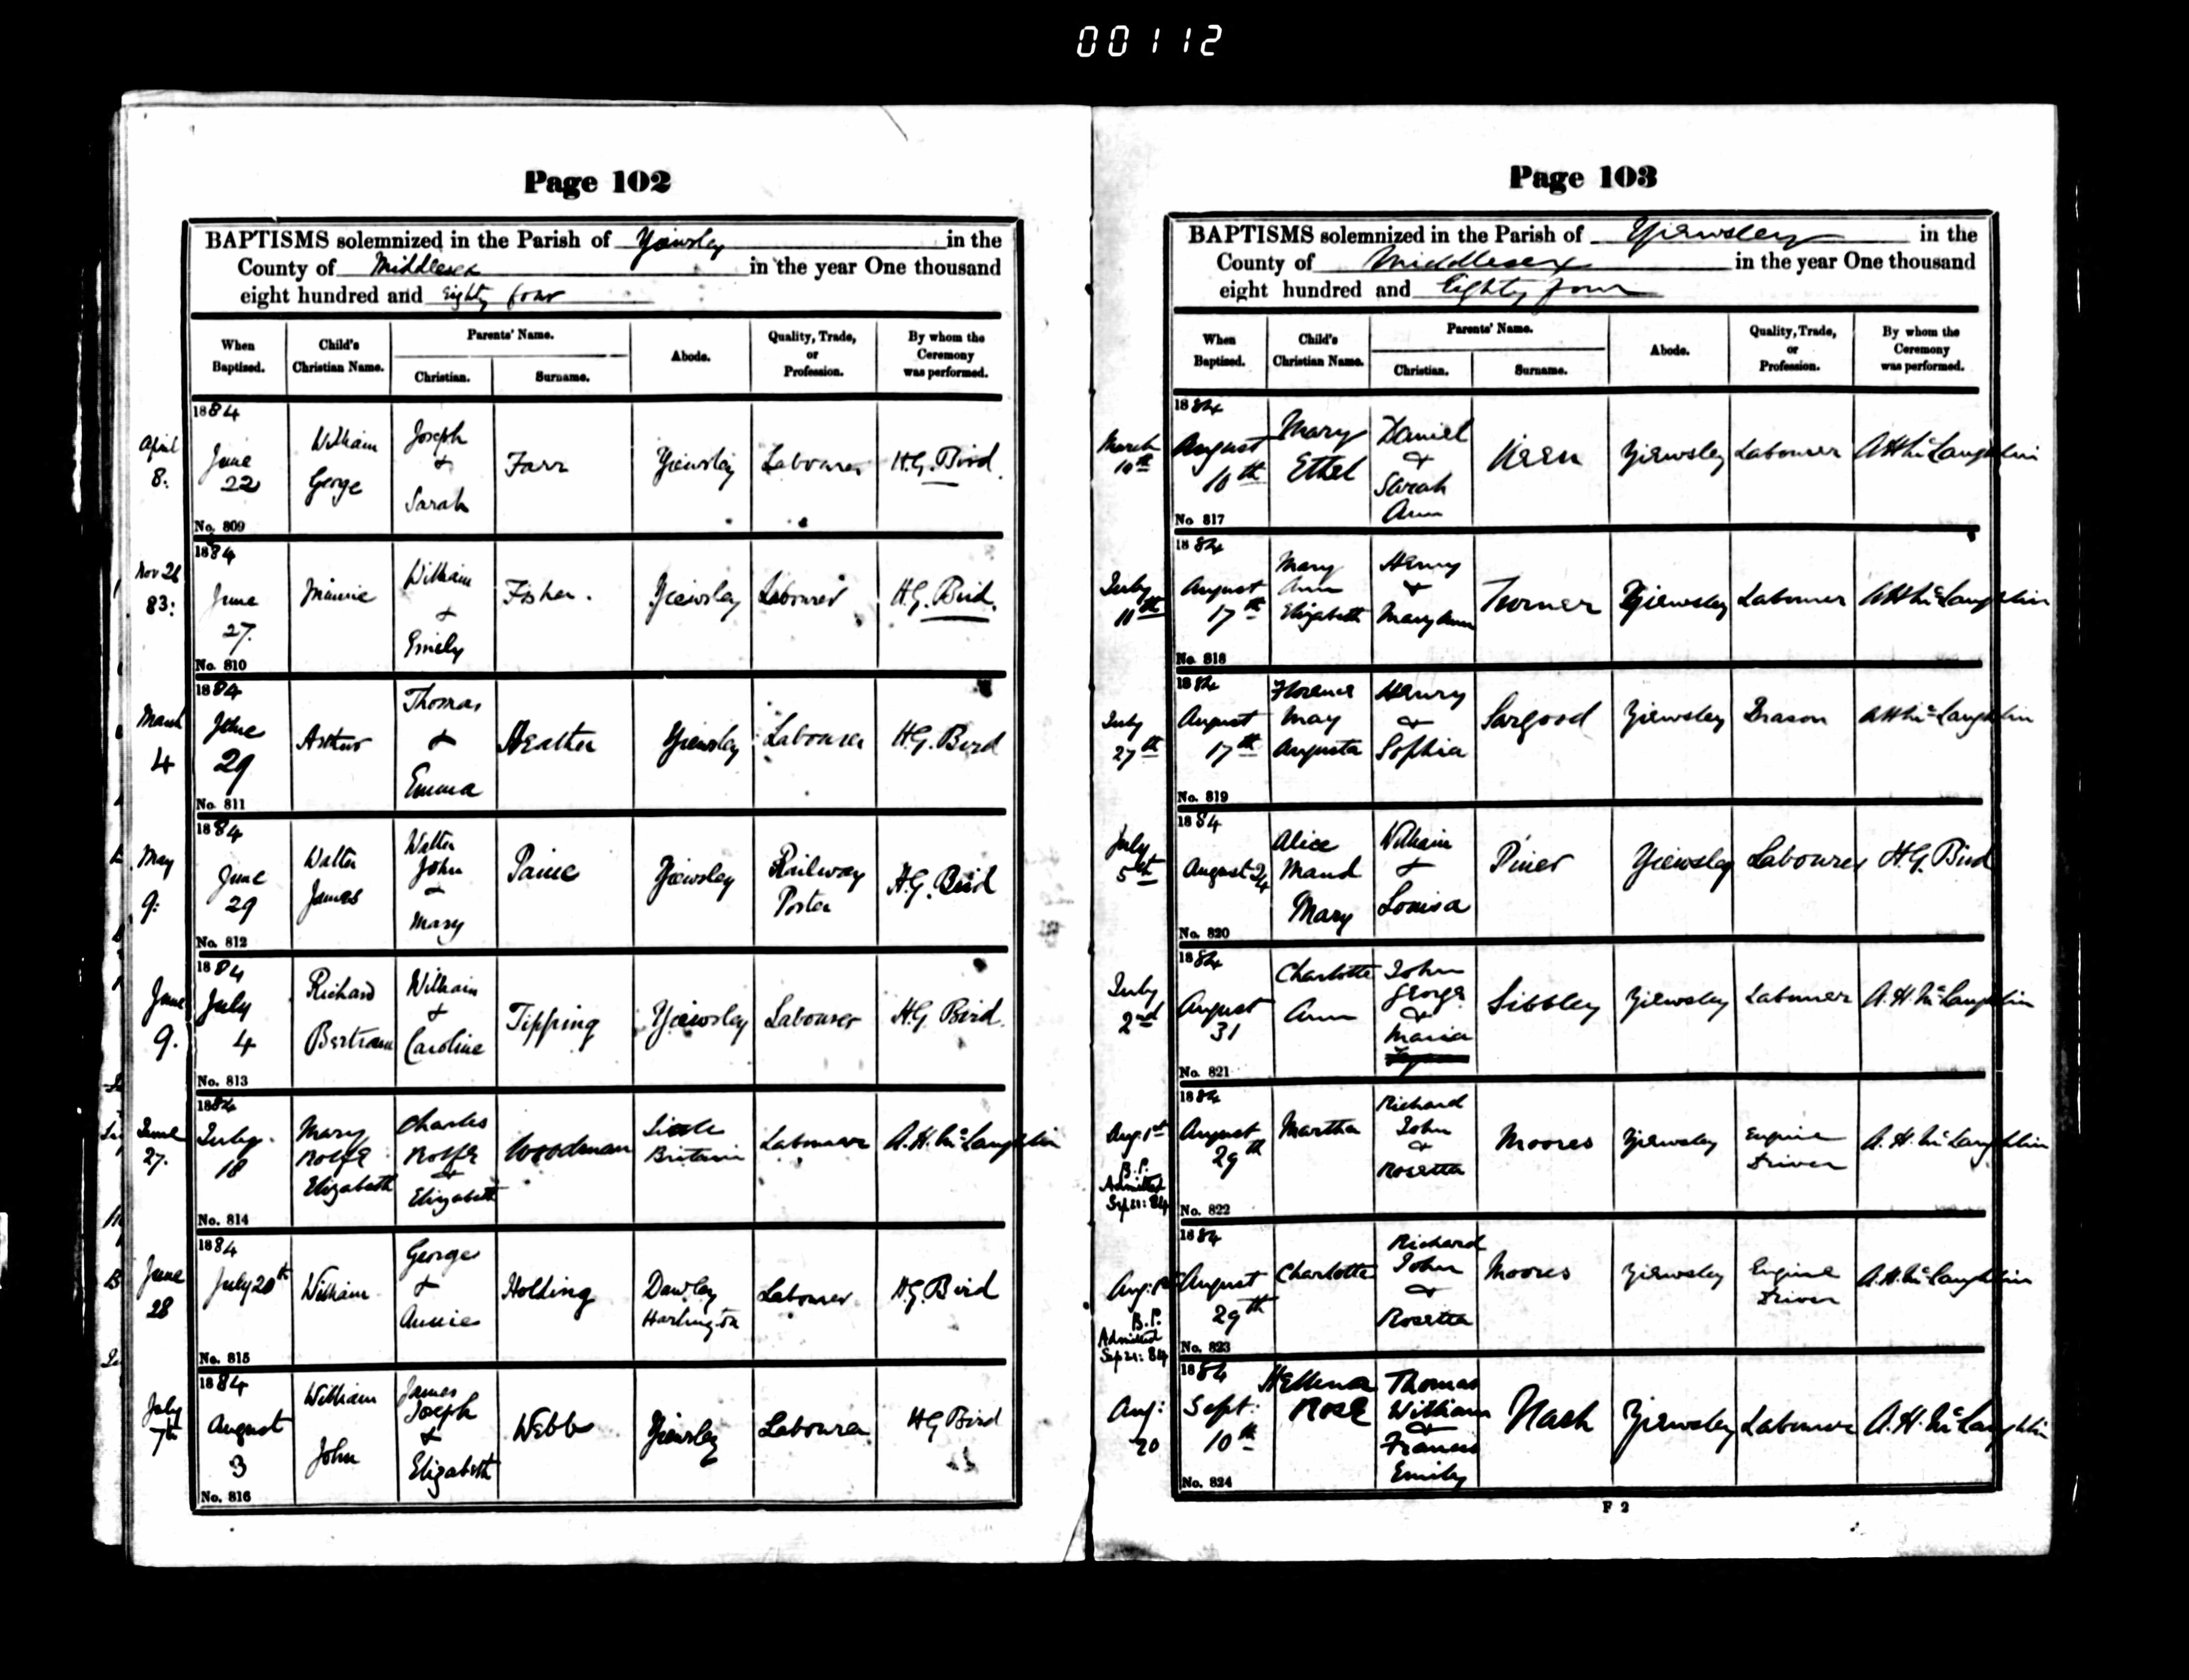 00112
Page 102
BAPTISMS solemnized in the Parish of Yiewsley in the
County of Middlesex in the year One thousand
eight hundred and Eighty four
When Baptised.
Child's Christian Name.
Parents' Name.
Christian.
Surname.
Abode.
Quality, Trade, or Profession.
By whom the Ceremony was performed.
April 8:
1884 June 22
William George
Joseph & Sarah
Farr
Yiewsley
Labourer
H.G. Bird.
No. 809
Nov 26 83:
1884 June 27.
Minnie
William & Emily
Fisher.
Yiewsley
Labourer
H.G. Bird.
No. 810
March 4
1884 June 29
Arthur
Thomas & Emma
Heather
Yiewsley
Labourer
H.G. Bird
No. 811
May 9:
1884 June 29
Walter James
Walter John & Mary
Paine
Yiewsley
Railway Porter
H.G. Bird
No. 812
June 9.
1884 July 4
Richard Bertram
William & Caroline
Tipping
Yiewsley
Labourer
H.G. Bird.
No. 813
June 27.
1884 July. 18
Mary Rolfe Elizabeth
Charles Rolfe & Elizabeth
Woodman
Little Britain
Labourer
A.H. McLaughlin
No. 814
June 28
1884 July 20th
William
George & Annie
Holding
Dawley Harlington
Labourer
H.G. Bird
No. 815
July 7th
1884 August 3
William John
James Joseph & Elizabeth
Webb
Yiewsley
Labourer
H G Bird
No. 816
Page 103
BAPTISMS solemnized in the Parish of Yiewsley in the
County of Middlesex in the year One thousand
eight hundred and Eighty four
When Baptised.
Child's Christian Name.
Parents' Name.
Christian.
Surname.
Abode.
Quality, Trade, or Profession.
By whom the Ceremony was performed.
March 10th
1884 August 10th
Mary Ethel
Daniel & Sarah Ann
Keen
Yiewsley
Labourer
A H McLaughlin
No 817
July 11th
1884 August 17th
Mary Ann Elizabeth
Henry & Mary Ann
Turner
Yiewsley
Labourer
A H McLaughlin
No. 818
July 27th
1884 August 17th
Florence May Augusta
Henry & Sophia
Sargood
Yiewsley
A H McLaughlin
No. 819
July 5th
1884 August 24
Alice Maud Mary
William & Louisa
Piner
Yiewsley
Labourer
H.G. Bird
No. 820
July 2nd
1884 August 31
Charlotte Ann
John George & Maria
Sibbley
Yiewsley
Labourer
A. H. McLaughlin
No. 821
Aug: 1st
B.P. Admitted Sep 21: 84
1884 August 29th
Martha
Richard John & Rosetta
Moores
Yiewsley
Engine Driver
A. H. McLaughlin
No. 822
Aug: 1st
B.P. Admitted Sep 21: 84
1884 August 29th
Charlotte
Richard John & Rosetta
Moores
Yiewsley
Engine Driver
A.H. McLaughlin
No. 823
Aug: 20
1884 Sept: 10th
Hellena Rose
Thomas William & Frances Emily
Nash
Yiewsley
Labourer
A. H. McLaughlin
No. 824
F 2